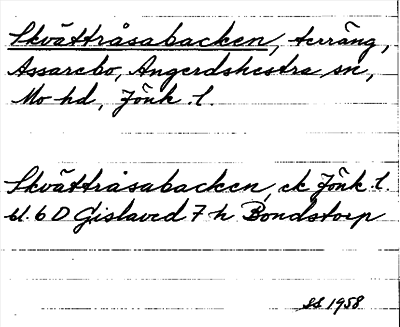 Skvättråsabacken, terräng,
Assarebo, Angerdshestra sn,
Mo hd, Jönk. l.
Skvättråsabacken, ek Jönk. l.
bl. 6 D Gislaved 7 h Bondstorp
SS 1958